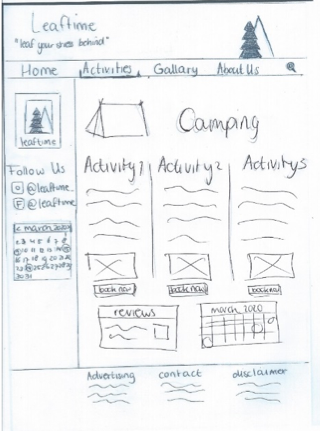 Leaftime
"leaf your stress behind"
Home Activities Gallary About Us
leaftime
Camping
Follow Us
@leaftime
F @leaftime
Activity 1 Activity 2 Activity 3
< march 2020
book now book now book now
reviews
march 2020
Advertising contact disclaimer